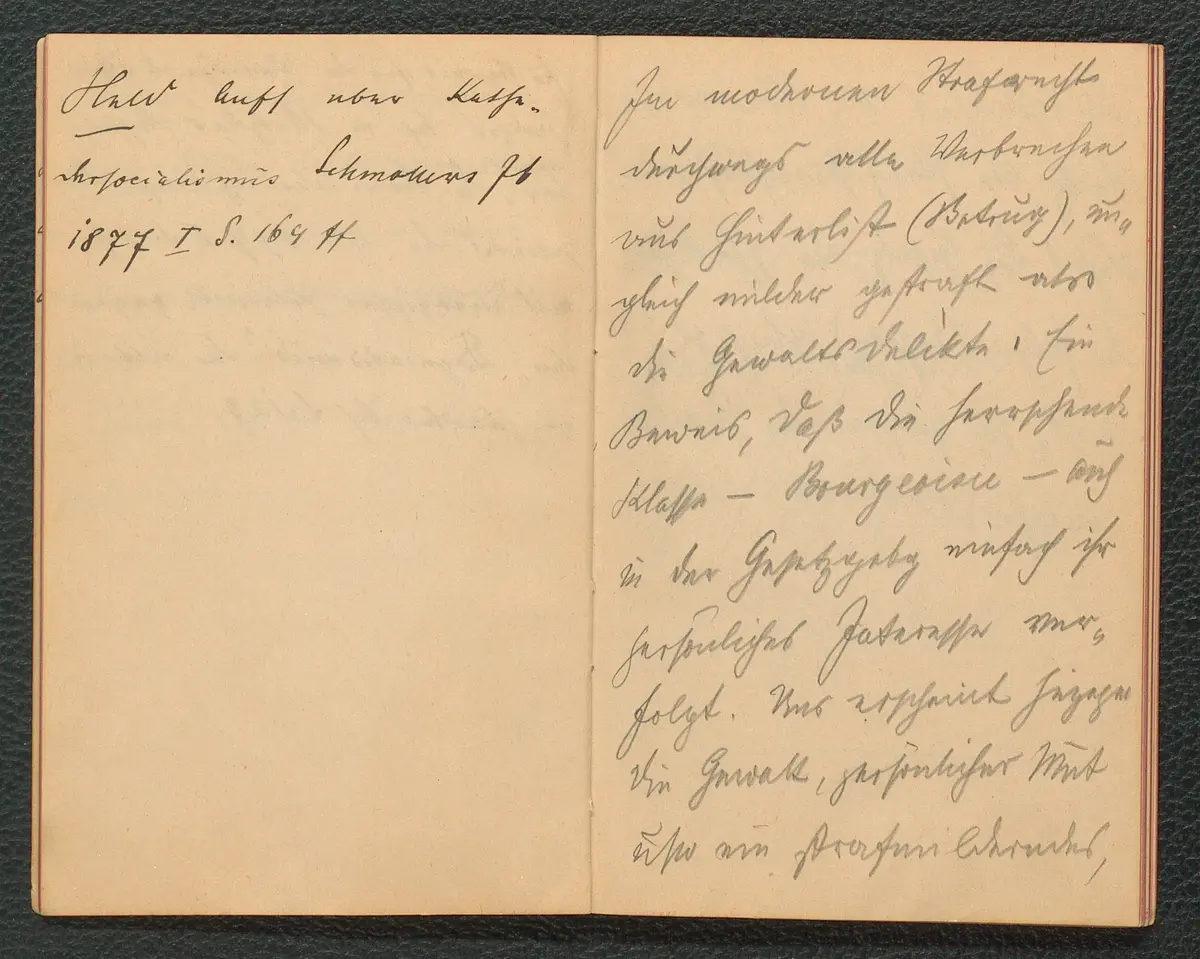 Held Aufs über Kathe-
dersocialismus Schmollers Jb
1877 I S. 164 ff
Im modernen Strafrecht
durchwegs alle Verbrechen
aus Hinterlist (Betrug), un-
gleich milder gestraft als
die Gewaltsdelikte. Ein
Beweis, daß die herrschende
Klasse – Bourgeoisie – auch
in der Gesetzgebg einfach ihr
persönliches Interesse ver-
folgt. Uns erscheint hingegen
die Gewalt, persönlicher Mut
usw ein strafmilderndes,